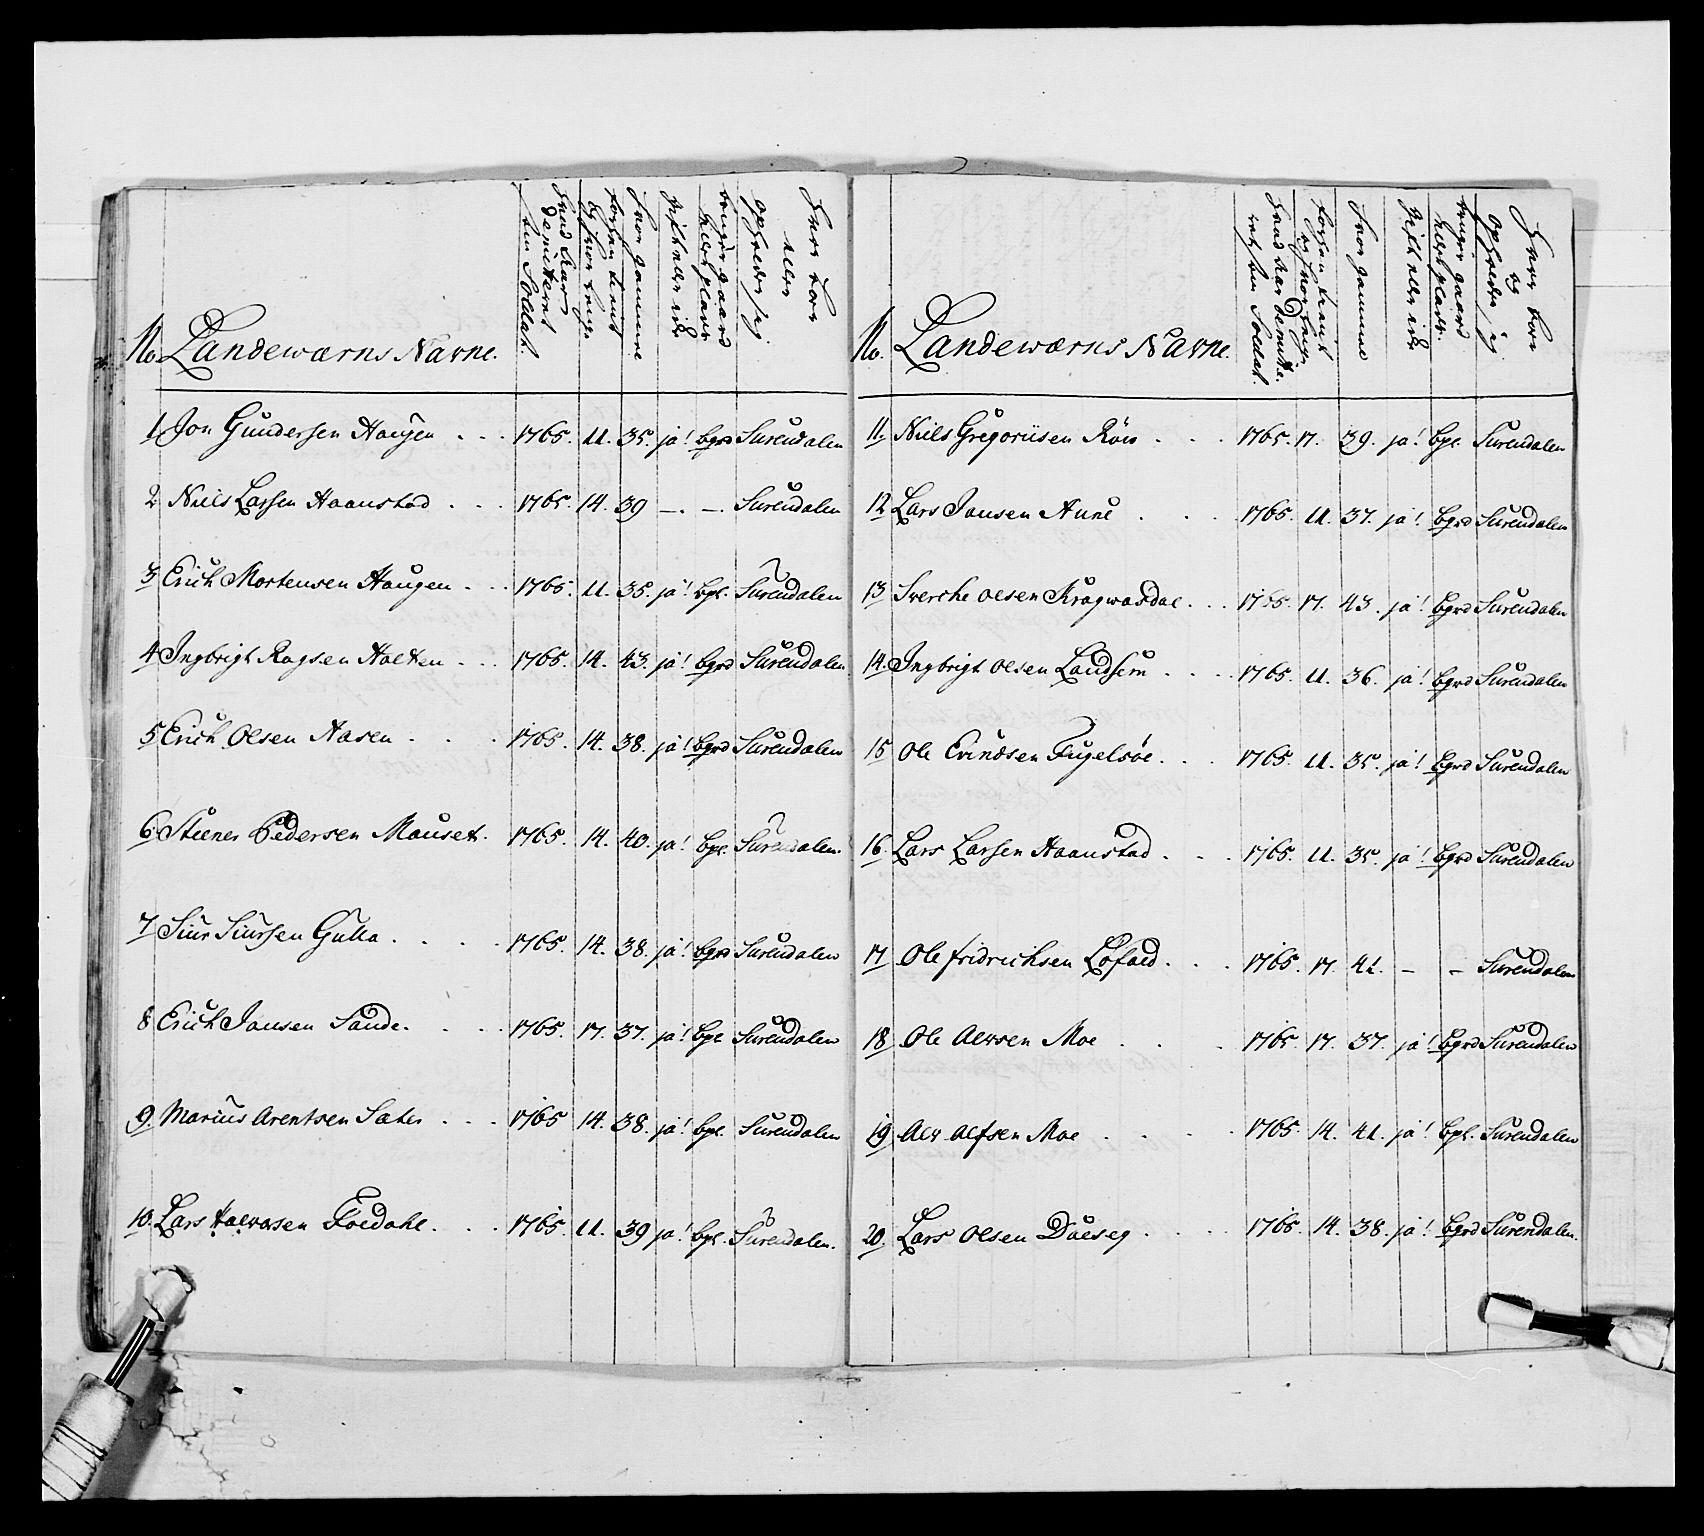 No. Landewærns Navne. hvad Aar demitteret som Soldat. og hvor længe forhen tient hvor gammel gift eller ey bruger gaard eller plads hvor boer eller opholder sig
1 Jon Gundersen Haugen . . . 1765. 11. 35. ja! bgrd Surendalen
2 Niels Larsen Haanstad . . . 1765. 14. 39 —. —. Surendalen
3 Erich Mortensen Haugen . . . 1765. 11. 35. ja! bpl. Surendalen
4 Ingbrigt Rogsen Holten . . . 1765. 14. 43. ja! bgrd Surendalen.
5 Erich Olsen Aasen . . . 1765. 14. 38. ja! bgrd Surendalen
6 Steener Pedersen Mauset. 1765. 14. 40. ja! bpl. Surendalen.
7 Siur Siursen Gulla . . . . 1765. 14. 38. ja! bgrd Surendalen
8 Erich Jonsen Sande. . . . 1765. 17. 37. ja! bpl Surendalen
9. Marius Arentsen Sæter . . . 1765 14. 38. ja! bpl. Surendalen
10. Lars Halvorsen Foedahl. . . 1765. 11. 39 ja! bpl. Surendalen.
No. Landewærns Navne. hvad Aar demitte. ret som Soldat. og hvor længe forhen tient hvor gammel gift eller ey bruger gaard eller plads. hvor boer og opholder sig
11. Niels Gregoriisen Röv . . . 1765. 17. 39. ja! bpl. Surendalen
12 Lars Jonsen Aune . . . 1765. 11. 37. ja! bgrd Surendalen
13 Sverche Olsen Kragwasdal . . . 1765. 17. 43. ja! bgrd Surendalen
14. Ingbrigt Olsen Landsem . . . 1765. 11. 36. ja! bgrd Surendalen
15 Ole Evindsen Fugelsöe . . . 1765. 11. 35. ja! bgrd Surendalen
16. Lars Larsen Haanstad . . . 1765. 11. 35. ja! bgrd Surendalen
17 Ole fridrichsen Löfald . . . 1765. 17. 41. – – Surendalen
18 Ole Alvsen Moe . . . 1765. 17. 37. ja! bgrd Surendalen
19 Alv Alfsen Moe . . . . 1765. 14. 41. ja! bpl. Surendalen
20. Lars Olsen Dalseg . . . . 1765. 14. 38. ja! bgrd Surendalen.